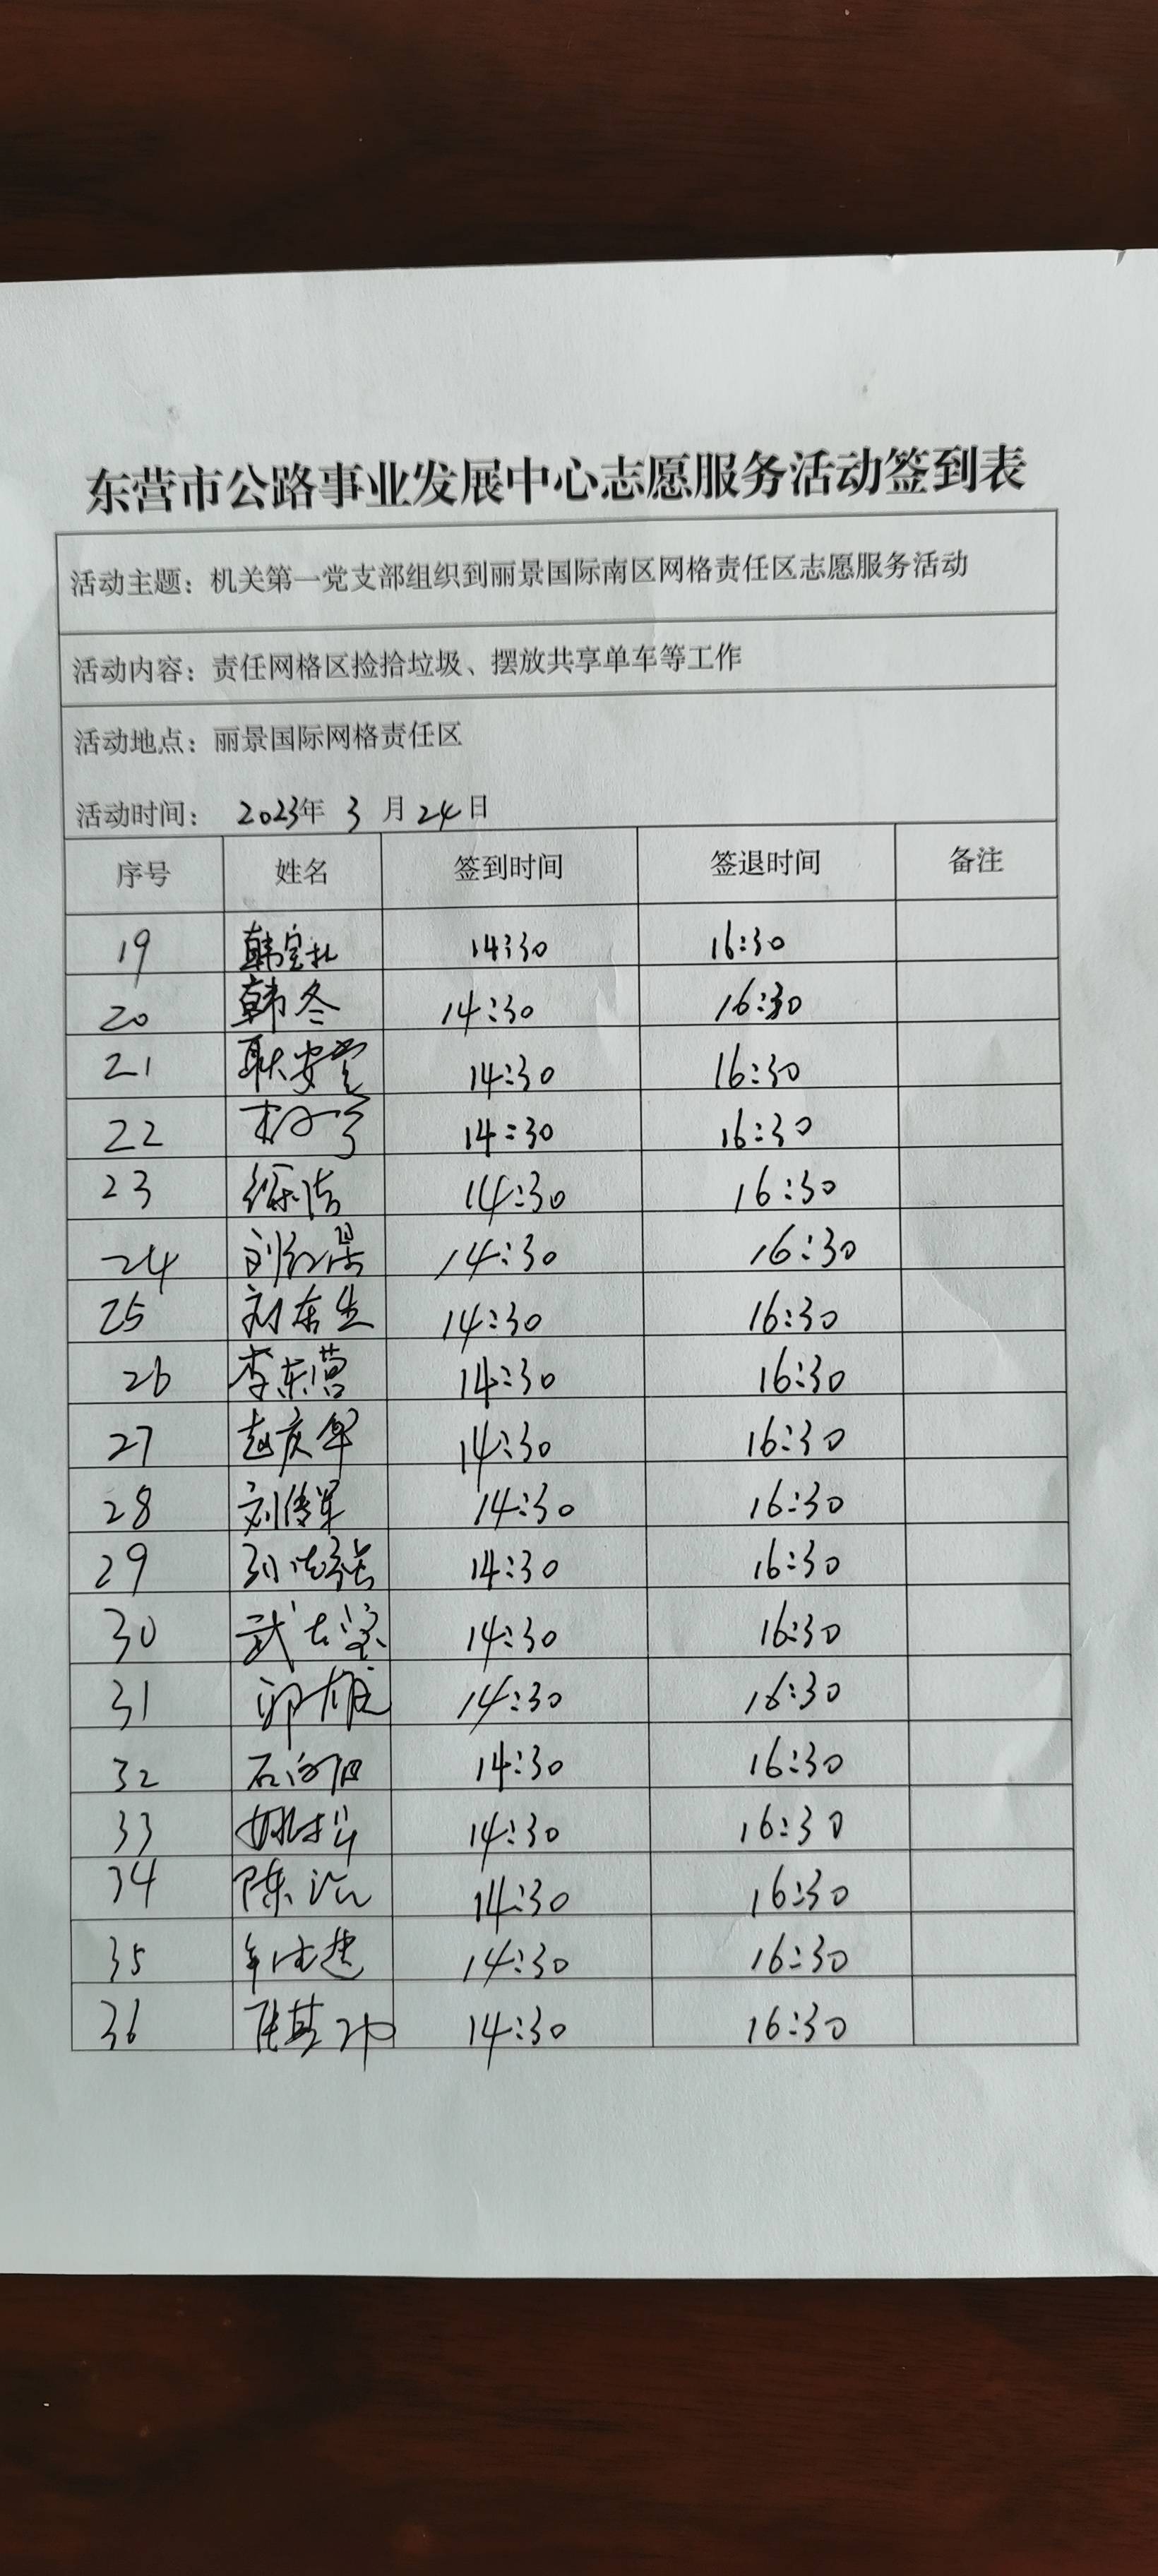 东营市公路事业发展中心志愿服务活动签到表
活动主题：机关第一党支部组织到丽景国际南区网格责任区志愿服务活动
活动内容：责任网格区捡拾垃圾、摆放共享单车等工作
活动地点：丽景国际网格责任区
活动时间： 2023年 3 月 24 日
序号 姓名 签到时间 签退时间 备注
19 韩宝 14:30 16:30
20 韩冬 14:30 16:30
21 耿安堂 14:30 16:30
22 14:30 16:30
23 徐洁 14:30 16:30
24 刘红景 14:30 16:30
25 刘东生 14:30 16:30
26 李东营 14:30 16:30
27 赵庆军 14:30 16:30
28 刘传军 14:30 16:30
29 14:30 16:30
30 武 14:30 16:30
31 14:30 16:30
32 石 14:30 16:30
33 姚 14:30 16:30
34 陈 14:30 16:30
35 14:30 16:30
36 张 14:30 16:30